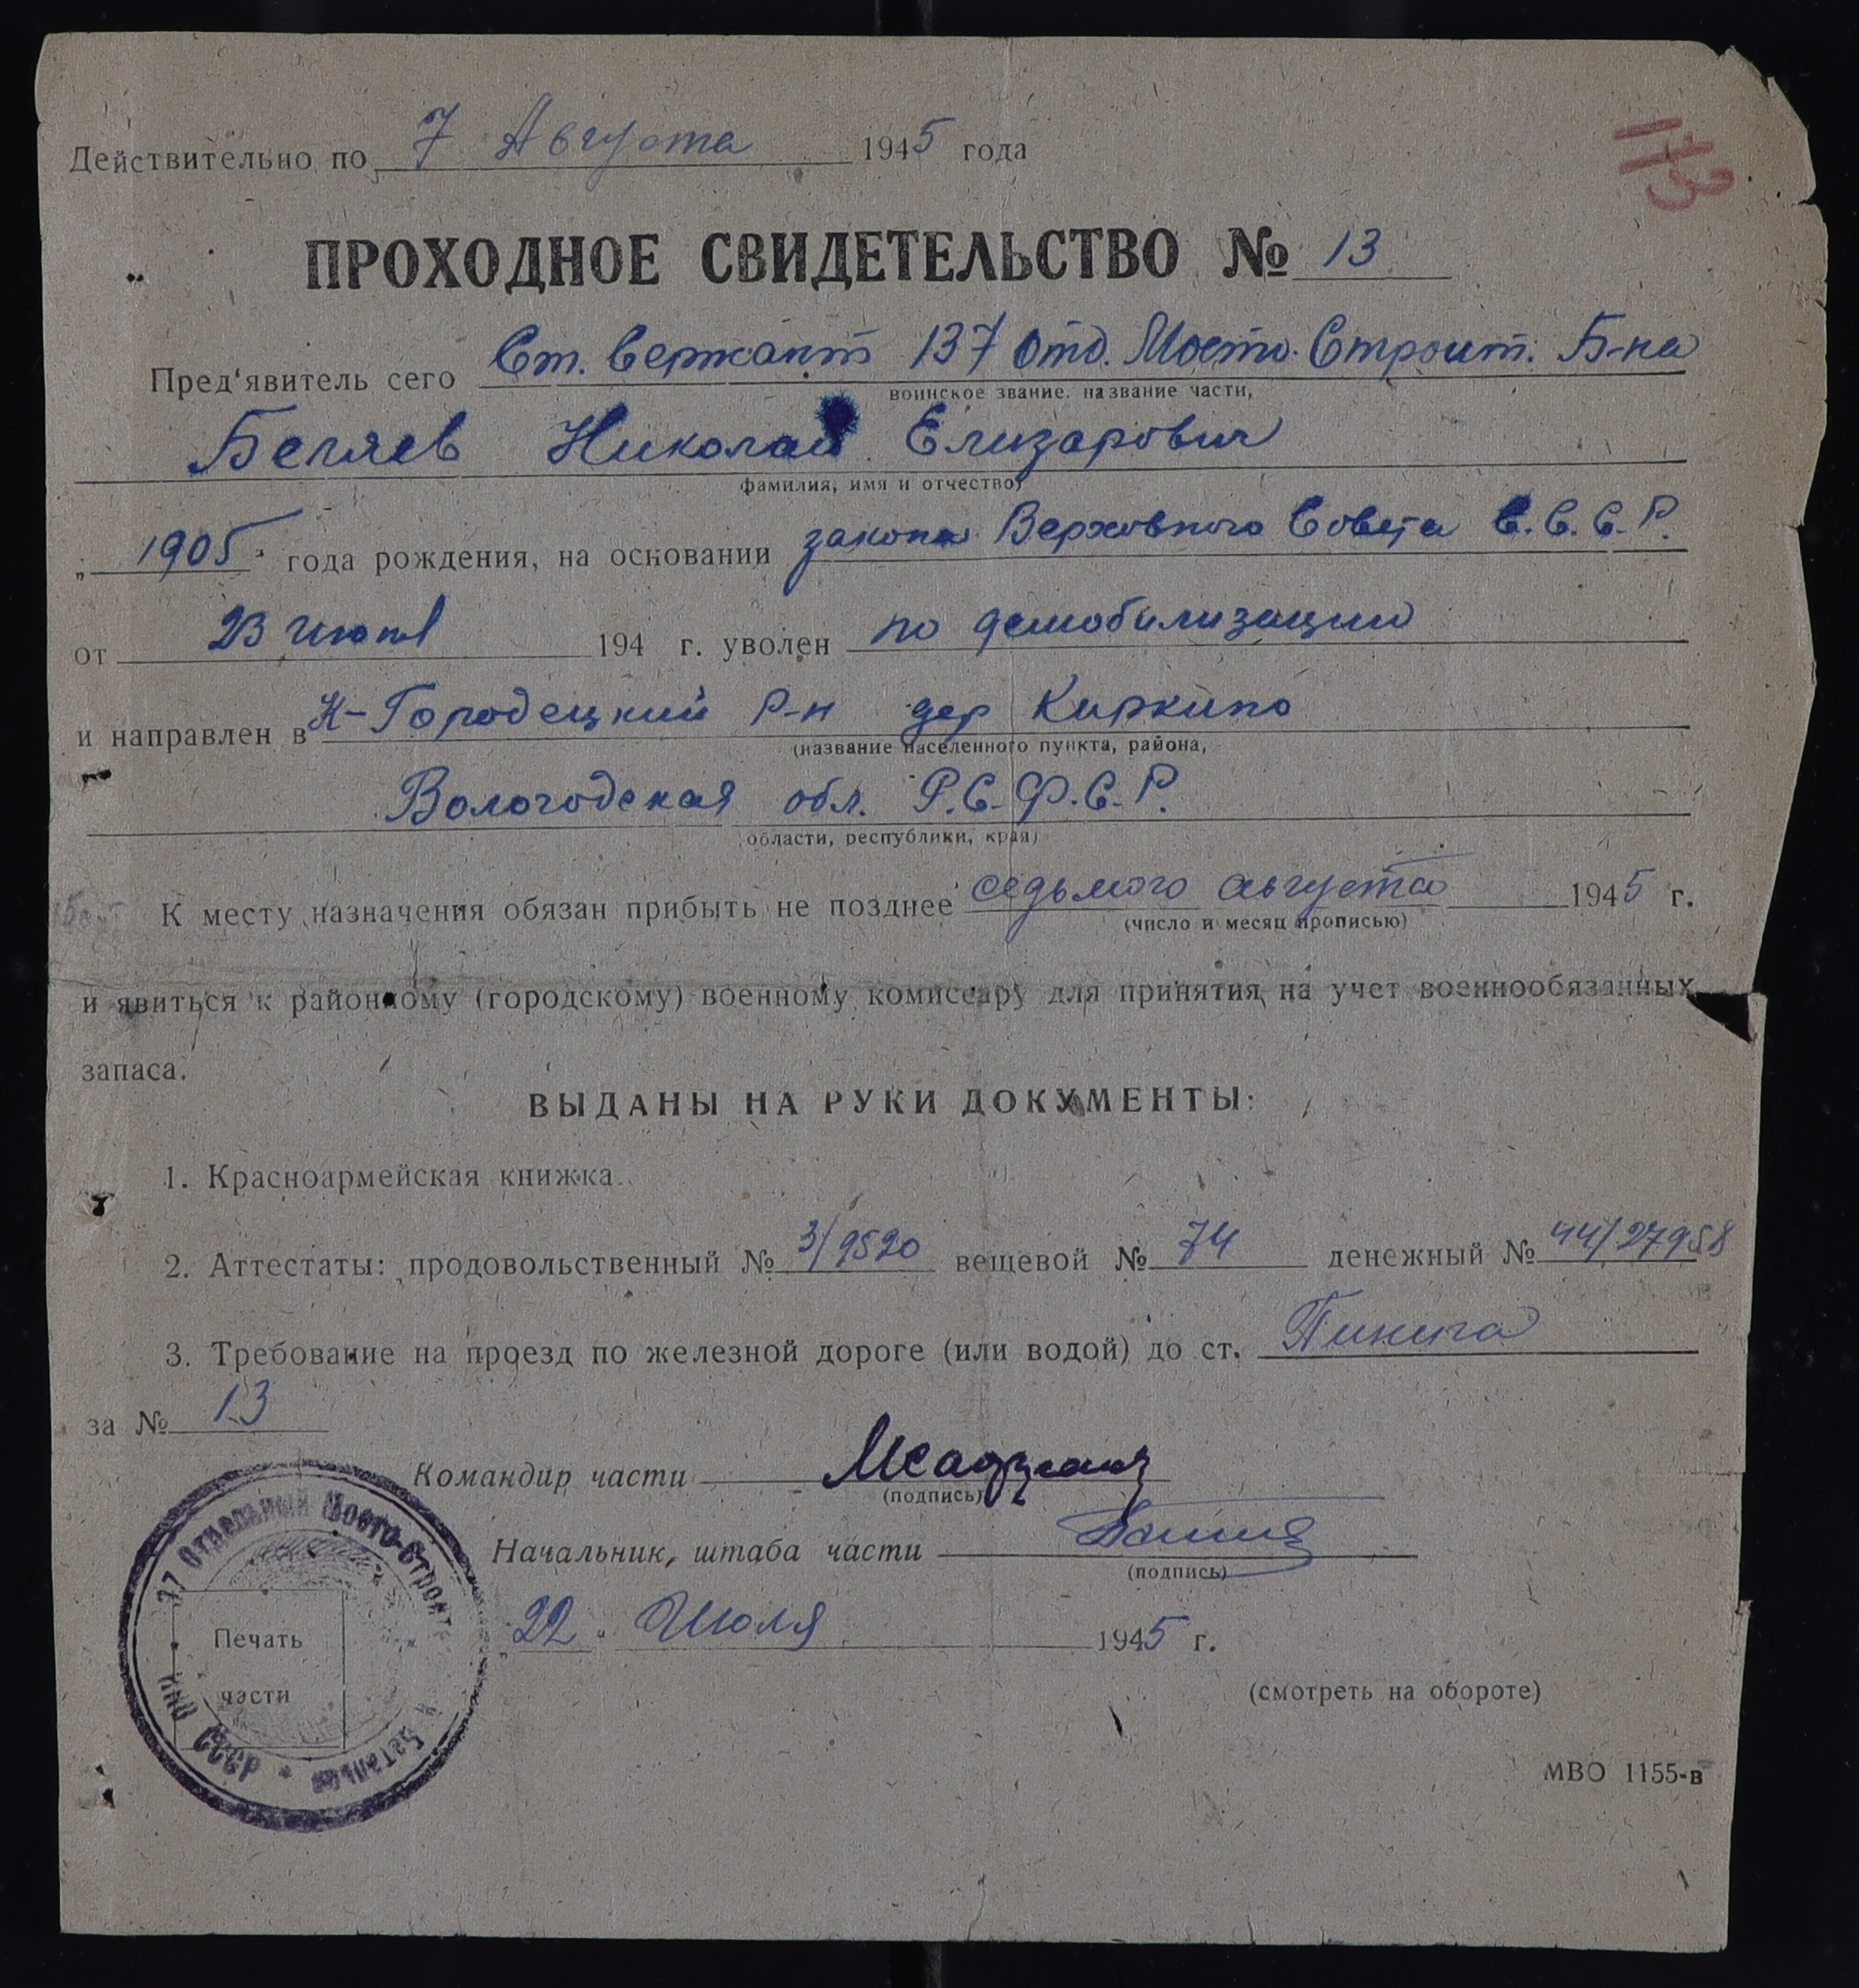 Действительно по 7 Августа 1945 года
ПРОХОДНОЕ СВИДЕТЕЛЬСТВО № 13
Пред'явитель сего Ст. Сержант 137 отд. Мосто. Строит. Б-на
воинское звание, название части,
Беляев Николай Елизарович
фамилия, имя и отчество)
„1905" года рождения, на основании закона Верховного Совета С.С.С.Р.
от 23 июня 194 г. уволен по демобилизации
и направлен в К-Городецкий р-н дер Киркино
(название населенного пункта, района,
Вологодская обл. Р.С.Ф.С.Р.
области, республики, края)
К месту назначения обязан прибыть не позднее седьмого августа 1945 г.
(число и месяц прописью)
и явиться к районному (городскому) военному комиссару для принятия на учет военнообязанных
запаса.
ВЫДАНЫ НА РУКИ ДОКУМЕНТЫ:
1. Красноармейская книжка.
2. Аттестаты: продовольственный № 3/9520 вещевой № 74 денежный № 44/27958
3. Требование на проезд по железной дороге (или водой) до ст.
за № 13
Командир части
(подпись)
Начальник, штаба части
(подпись)
„22" Июля 1945 г.
Печать
части
37 Отдельный Мосто-Строит
й Баталион * НКО СССР *
(смотреть на обороте)
МВО 1155-в